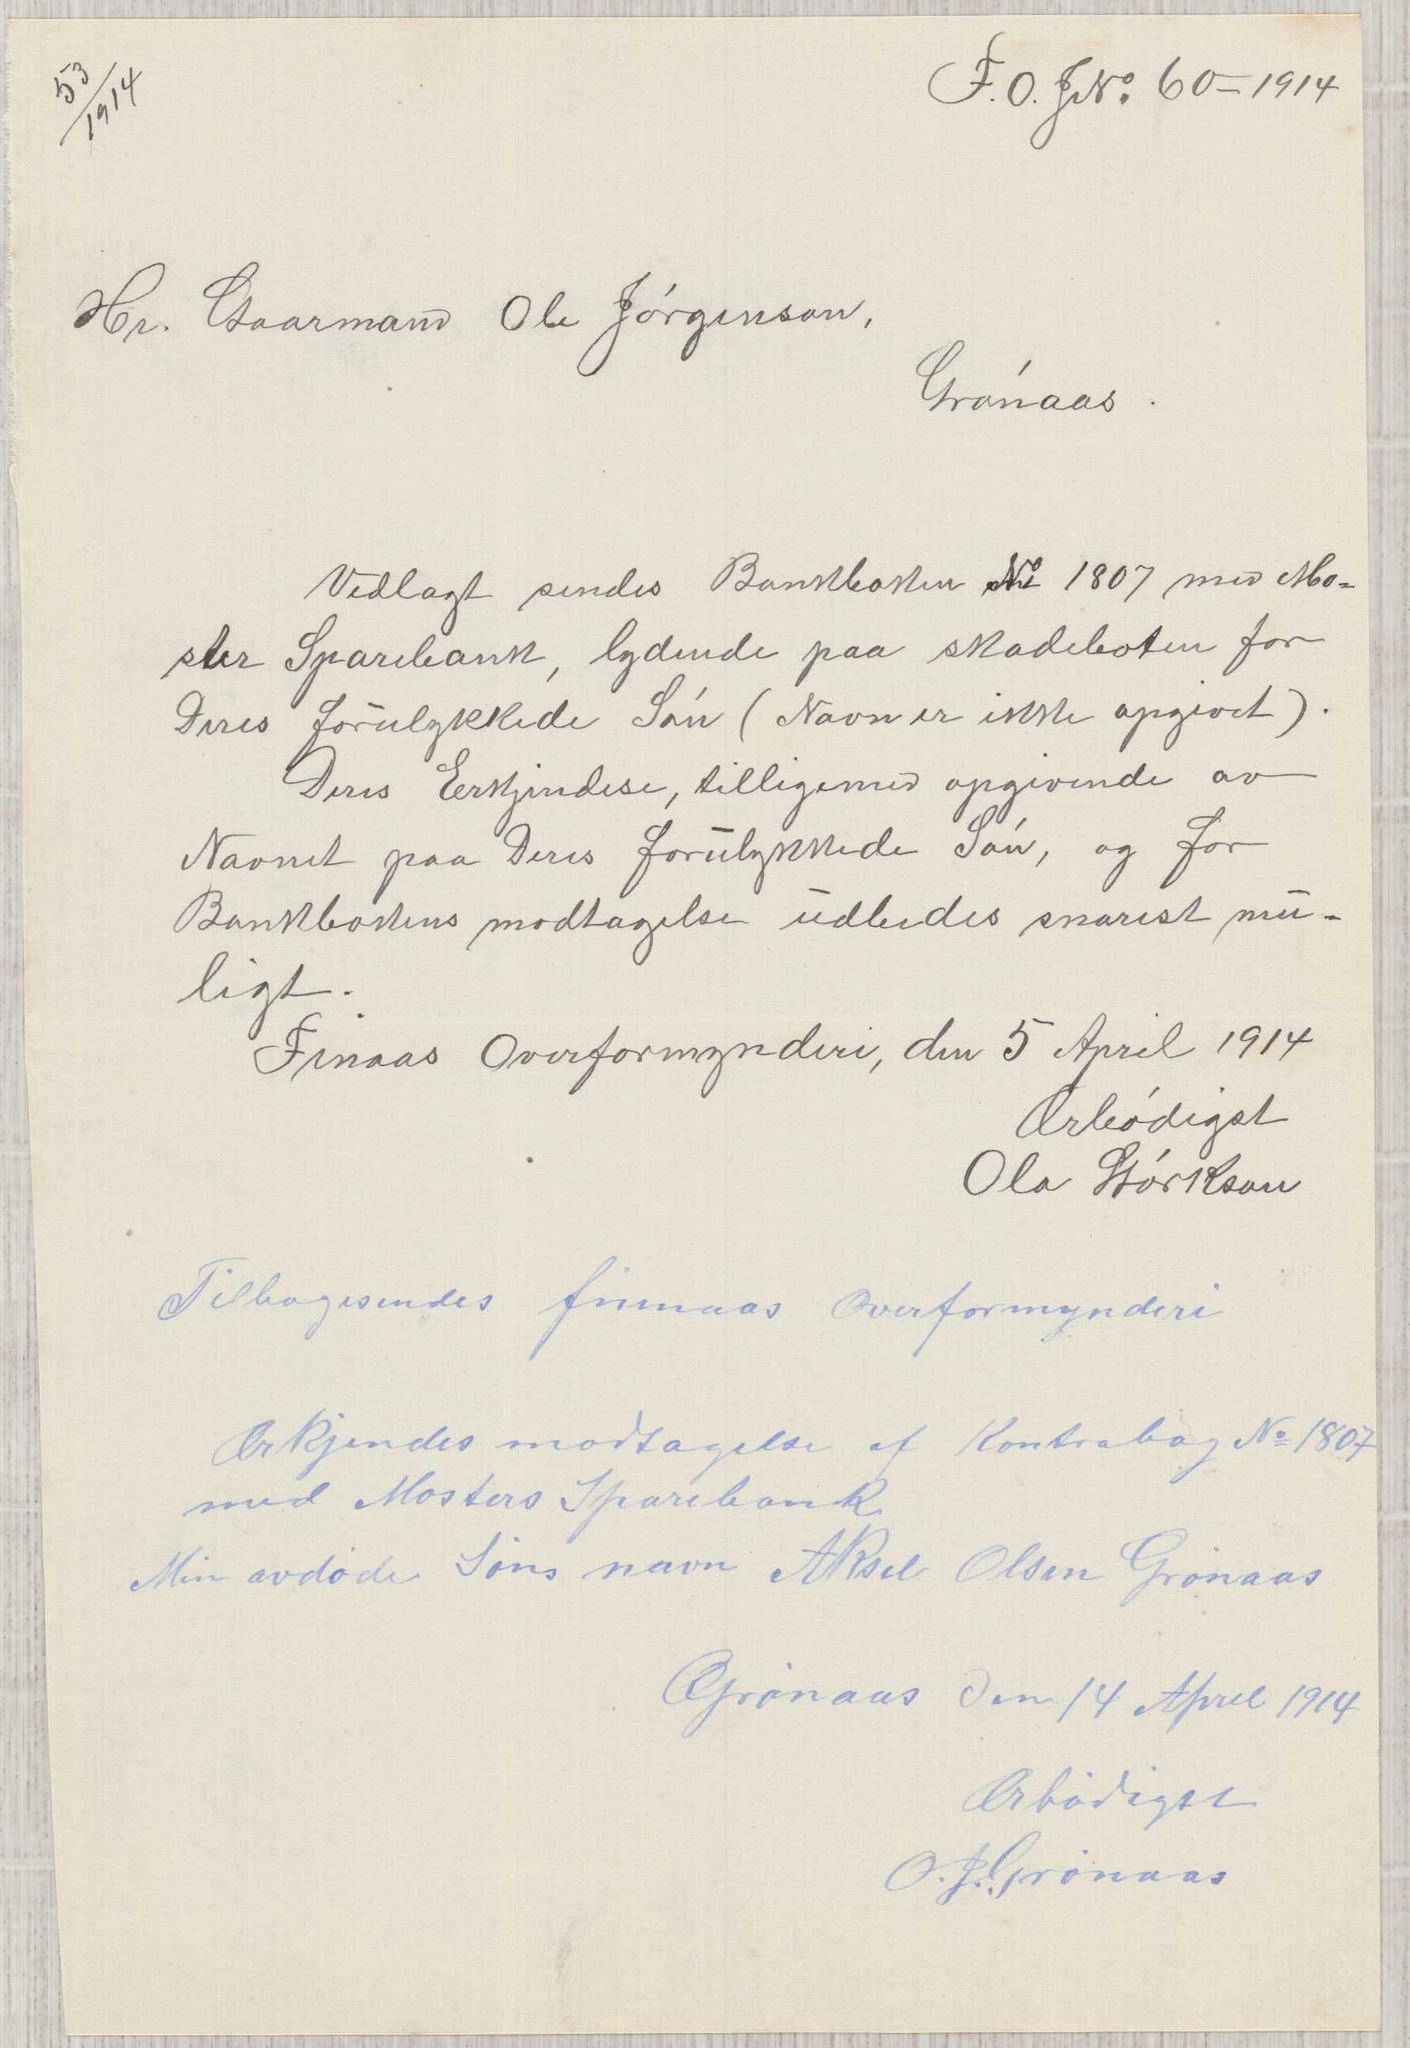 53/1914
F. O. J№. 60-1914
Hr. Gaarmand Ole Jórgenson,
Grónaas.
Vedlagt sendes Bankboken № 1807 med Mo-
ster Sparebank, lydende paa skadeboten for
Deres forulykkede Són (Navn er ikke opgivet).
Deres Eerkjindese, tilligemed opgivende av
Navnet paa Deres forulykkede Són, og for
Bankbokens modtagelse udbedes snarest mu-
ligt.
Finaas Overformynderi, den 5 April 1914
Ærbódigst
Ola Størkson
Tilbagesendes finnaas Overformynderi
Ærkjendes modtagelse af Kontrabog № 1807
med Mosters Sparebank
Min avdøde Søns navn Aksel Olsen Grønaas
Grønaas den 14 April 1914
Ærbødigst
O. J. Grønaas